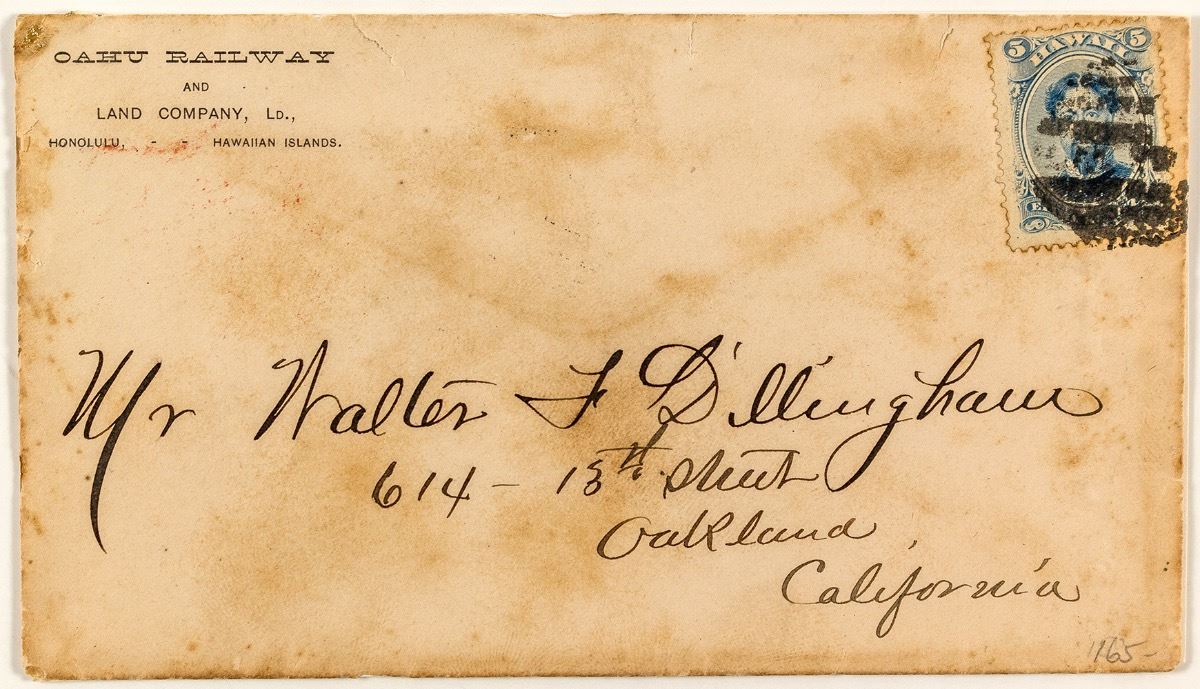 OAHU RAILWAY
AND
LAND COMPANY, LD.,
HONOLULU, - - HAWAIIAN ISLANDS.
5 HAWAII 5
Mr Walter F Dillingham
614 - 13th Street
Oakland
California
165-